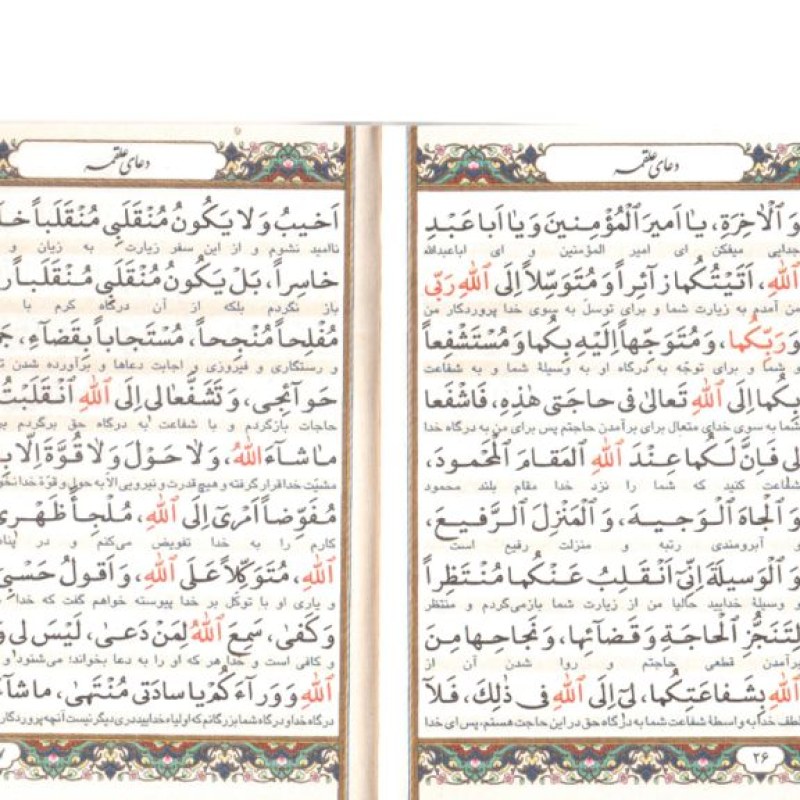 دعای علقمه
وَ الْاٰخِرَةِ، یٰا اَمیرَ الْمُؤْمِنینَ وَ یٰا اَبا عَبْدِ
جدایی میفکن ای امیر المؤمنین و ای اباعبدالله
اللهِ، اَتَیْتُکُما زآئِراً وَ مُتَوَسِّلاً اِلَی اللهِ رَبّی
من آمدم به زیارت شما و برای توسل به سوی خدا پروردگار من
وَ رَبِّکُما، وَ مُتَوَجِّهاً اِلَیْهِ بِکُما وَ مُسْتَشْفِعاً
و شما و برای توجّه به درگاه او به وسیلهٔ شما و به شفاعت
بِکُما اِلَی اللهِ تَعالیٰ فی حاجَتی هٰذِهِ، فَاشْفَعا
شما به سوی خدای متعال برای برآمدن حاجتم پس برای من به درگاه خدا
لی فَاِنَّ لَکُما عِنْدَ اللهِ الْمَقامَ الْمَحْمودَ،
شفاعت کنید که شما را نزد خدا مقام بلند محمود
وَ الْجاهَ الْوَجیهَ، وَ الْمَنْزِلَ الرَّفیعَ،
و آبرومندی رتبه و منزلت رفیع است
وَ الْوَسیلَةَ اِنّی اَنْقَلِبُ عَنْکُما مُنْتَظِراً
و وسیلهٔ خدایید حالیا من از زیارت شما بازمی‌گردم و منتظر
لِتَنَجُّزِ الْحاجَةِ وَ قَضآئِها، وَ نَجاحِها مِنَ
برآمدن قطعی حاجتم و روا شدن آن از
اللهِ بِشَفاعَتِکُما، لی اِلَی اللهِ فی ذٰلِکَ، فَلآ
لطف خدا به واسطهٔ شفاعت شما به درگاه حق در این حاجت هستم، پس ای خدا
۲۶
دعای علقمه
اَخیبُ وَ لا یَکُونُ مُنْقَلَبی مُنْقَلَباً
ناامید نشوم و از این سفر زیارت به زیان و
خاسِراً، بَلْ یَکُونُ مُنْقَلَبی مُنْقَلَباً
باز نگردم بلکه از آن درگاه کرم با
مُفْلِحاً مُنْجِحاً، مُسْتَجاباً بِقَضآءِ،
و رستگاری و فیروزی و اجابت دعاها و برآورده شدن
حَوآئِجی، وَ تَشَفَّعا لی اِلَی اللهِ انْقَلَبْتُ
حاجات بازگردم و با شفاعت به درگاه حق برگردم
ما شآءَ اللهُ، وَ لا حَوْلَ وَ لا قُوَّةَ اِلّا
مشیّت خدا قرار گرفته و هیچ قدرت و نیرویی الا به حول و قوّهٔ خدا
مُفَوِّضاً اَمْری اِلَی اللهِ، مُلْجِأً ظَهْری
کارم را به خدا تفویض می‌کنم و در
اللهِ، مُتَوَکِّلاً عَلَی اللهِ، وَ اَقولُ حَسْبِیَ
و یاری او با توکل بر خدا پیوسته خواهم گفت که خدا
وَ کَفیٰ، سَمِعَ اللهُ لِمَنْ دَعیٰ، لَیْسَ لی
و کافی است و خدا هر که او را به دعا بخواند؛ می‌شنود و
اللهِ وَ وَرآءَکُمْ یا سادَتی مُنْتَهیٰ، ما شآءَ
درگاه خدا و درگاه شما بزرگانم که اولیاء خدایید دری دیگر نیست آنچه پروردگار